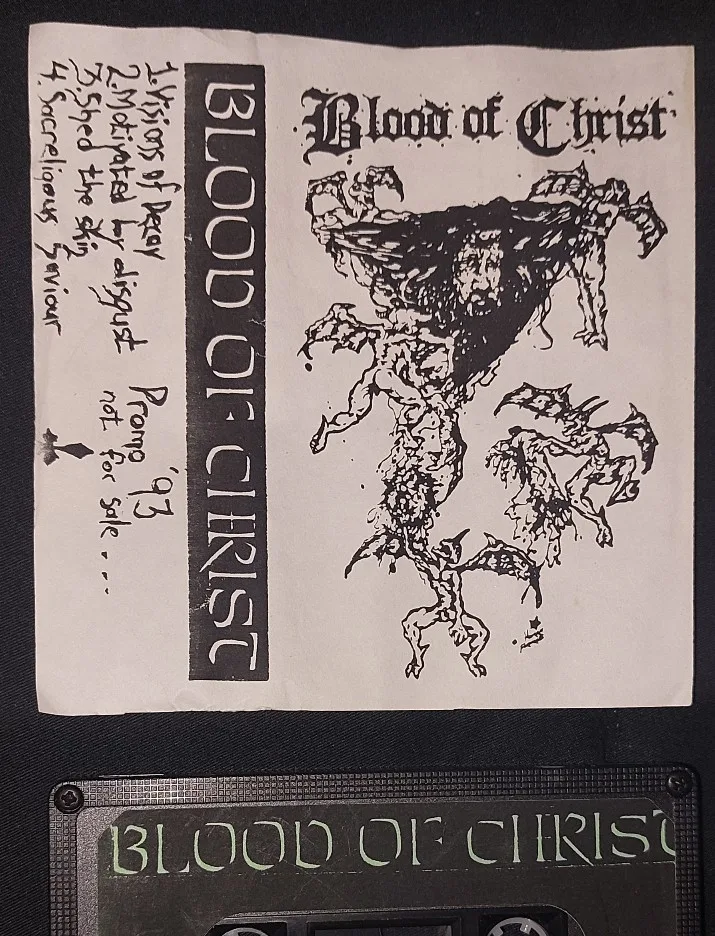 Blood of Christ
BLOOD OF CHRIST
1. Visions of Decay
2. Motivated by disgust
3. Shed the skin
4. Sacreligous Saviour
Promo '93
not for sale....
BLOOD OF CHRIST